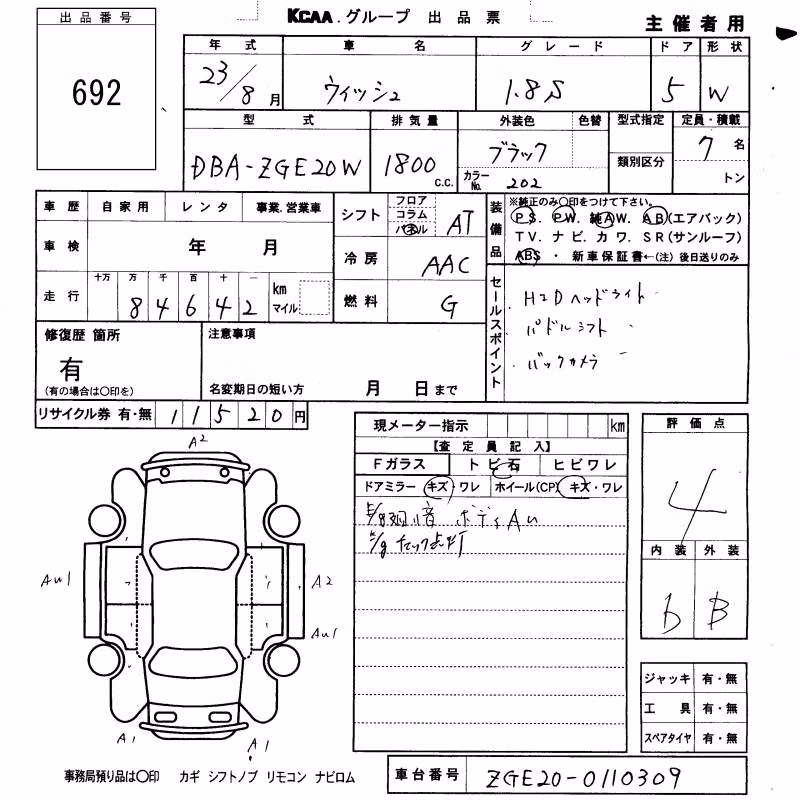 KCAA.グループ 出品票
主催者用
出品番号
692
年式 車名 グレード ドア 形状
23/8月 ウィッシュ 1.8S 5 W
型式 排気量 外装色 色替 型式指定 定員・積載
DBA-ZGE20W 1800 c.c. ブラック カラーNo. 202 類別区分 7名 トン
車歴 自家用 レンタ 事業.営業車
シフト フロア コラム パネル AT
装備品
※純正のみ〇印をつけて下さい。
PS. PW. 純AW. AB(エアバック)
TV. ナビ. カワ. SR(サンルーフ)
ABS ・ 新車保証書←(注)後日送りのみ
車検 年 月
冷房 AAC
走行 十万 万 千 百 十 一
84642 km マイル
燃料 G
セールスポイント
HIDヘッドライト
パドルシフト
バックカメラ
修復歴 箇所
有
(有の場合は〇印を)
注意事項
名変期日の短い方 月 日まで
リサイクル券 有・無 11520円
現メーター指示 km
【査定員記入】
Fガラス トビ石 ヒビワレ
ドアミラー キズ・ワレ ホイール(CP) キズ・ワレ
ボディAU
評価点
4
内装 外装
b B
A2
AU1
A2
AU1
A1
A1
ジャッキ 有・無
工具 有・無
スペアタイヤ 有・無
事務局預り品は〇印 カギ シフトノブ リモコン ナビロム
車台番号 ZGE20-0110309